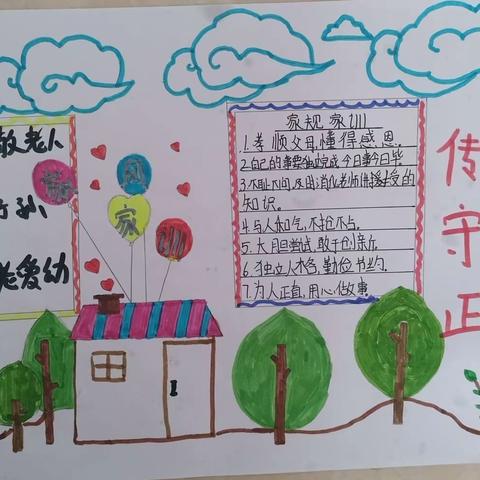 敬老人
孙
老爱幼
家
训
家规家训
1.孝顺父母,懂得感恩.
2.自己的事要独立完成 今日事今日毕
3.不耻下问,及时消化老师传授的
知识。
4.与人和气,不抢不占.
5.大胆尝试,敢于创新.
6.独立人格,勤俭节约.
7.为人正直,用心做事.
传
守
正